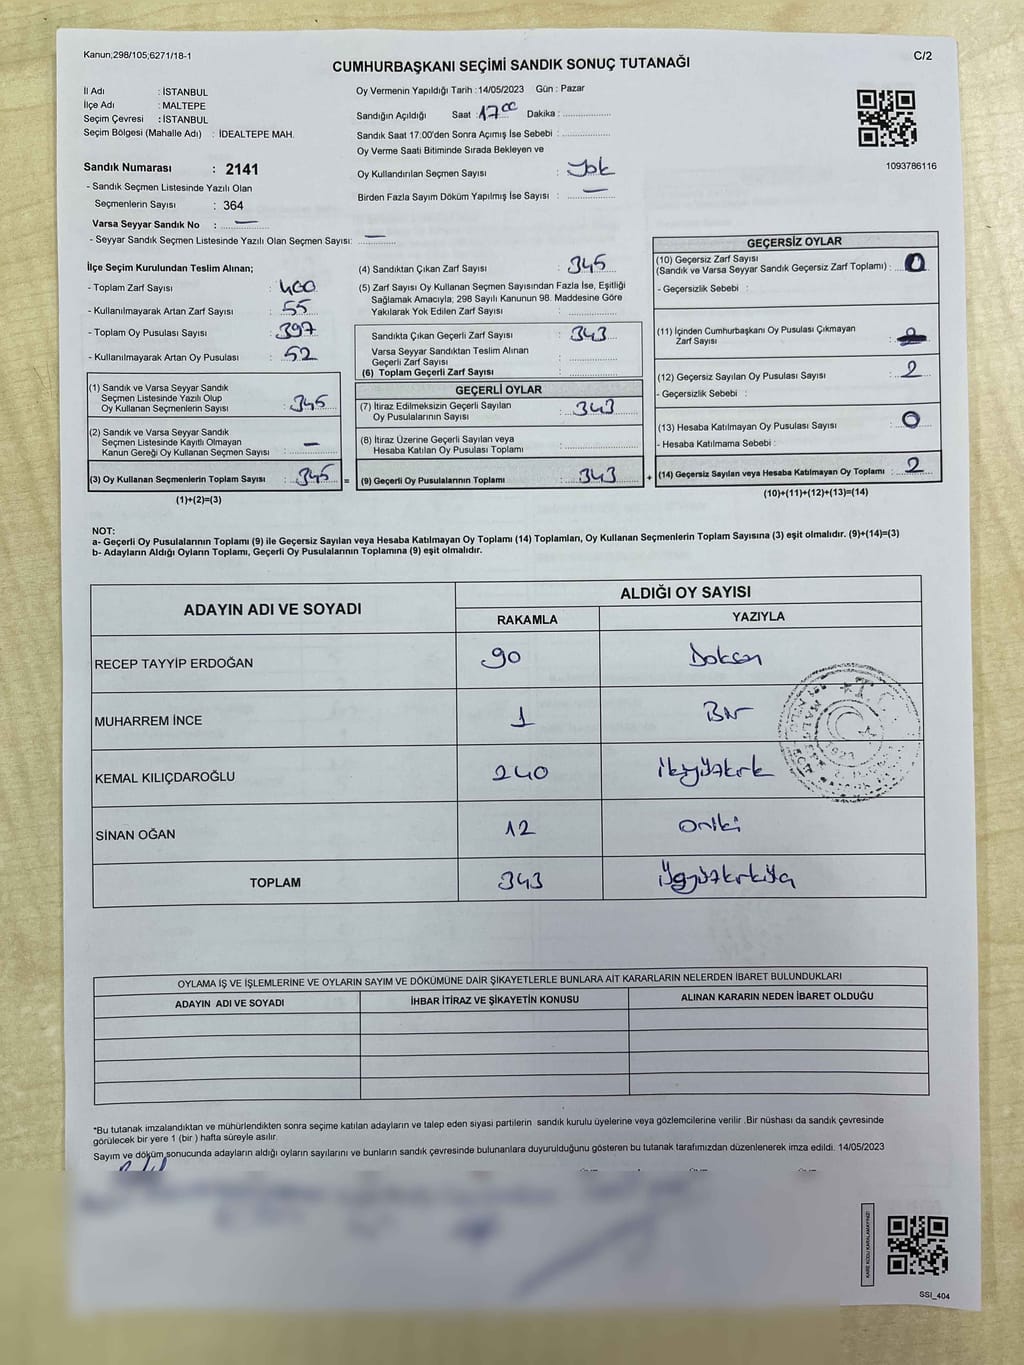 Kanun;298/105;6271/18-1
C/2
CUMHURBAŞKANI SEÇİMİ SANDIK SONUÇ TUTANAĞI
İl Adı : İSTANBUL
İlçe Adı : MALTEPE
Seçim Çevresi : İSTANBUL
Seçim Bölgesi (Mahalle Adı) : İDEALTEPE MAH.
Sandık Numarası : 2141
- Sandık Seçmen Listesinde Yazılı Olan
Seçmenlerin Sayısı : 364
Varsa Seyyar Sandık No : —
- Seyyar Sandık Seçmen Listesinde Yazılı Olan Seçmen Sayısı: —
Oy Vermenin Yapıldığı Tarih : 14/05/2023 Gün : Pazar
Sandığın Açıldığı Saat : 17 00 Dakika :
Sandık Saat 17:00'den Sonra Açımış İse Sebebi :
Oy Verme Saati Bitiminde Sırada Bekleyen ve
Oy Kullandırılan Seçmen Sayısı : Yok
Birden Fazla Sayım Döküm Yapılmış İse Sayısı : —
1093786116
İlçe Seçim Kurulundan Teslim Alınan;
- Toplam Zarf Sayısı : 400
- Kullanılmayarak Artan Zarf Sayısı : 55
- Toplam Oy Pusulası Sayısı : 397
- Kullanılmayarak Artan Oy Pusulası : 52
(1) Sandık ve Varsa Seyyar Sandık
Seçmen Listesinde Yazılı Olup
Oy Kullanan Seçmenlerin Sayısı : 345
(2) Sandık ve Varsa Seyyar Sandık
Seçmen Listesinde Kayıtlı Olmayan
Kanun Gereği Oy Kullanan Seçmen Sayısı : —
(3) Oy Kullanan Seçmenlerin Toplam Sayısı : 345 =
(1)+(2)=(3)
(4) Sandıktan Çıkan Zarf Sayısı : 345
(5) Zarf Sayısı Oy Kullanan Seçmen Sayısından Fazla İse, Eşitliği
Sağlamak Amacıyla; 298 Sayılı Kanunun 98. Maddesine Göre
Yakılarak Yok Edilen Zarf Sayısı :
Sandıkta Çıkan Geçerli Zarf Sayısı : 343
Varsa Seyyar Sandıktan Teslim Alınan
Geçerli Zarf Sayısı :
(6) Toplam Geçerli Zarf Sayısı :
GEÇERLİ OYLAR
(7) İtiraz Edilmeksizin Geçerli Sayılan
Oy Pusulalarının Sayısı : 343
(8) İtiraz Üzerine Geçerli Sayılan veya
Hesaba Katılan Oy Pusulası Toplamı :
(9) Geçerli Oy Pusulalarının Toplamı : 343 +
GEÇERSİZ OYLAR
(10) Geçersiz Zarf Sayısı
(Sandık ve Varsa Seyyar Sandık Geçersiz Zarf Toplamı) : 0
- Geçersizlik Sebebi :
(11) İçinden Cumhurbaşkanı Oy Pusulası Çıkmayan
Zarf Sayısı :
(12) Geçersiz Sayılan Oy Pusulası Sayısı : 2
- Geçersizlik Sebebi :
(13) Hesaba Katılmayan Oy Pusulası Sayısı : 0
- Hesaba Katılmama Sebebi :
(14) Geçersiz Sayılan veya Hesaba Katılmayan Oy Toplamı : 2
(10)+(11)+(12)+(13)=(14)
NOT:
a- Geçerli Oy Pusulalarının Toplamı (9) ile Geçersiz Sayılan veya Hesaba Katılmayan Oy Toplamı (14) Toplamları, Oy Kullanan Seçmenlerin Toplam Sayısına (3) eşit olmalıdır. (9)+(14)=(3)
b- Adayların Aldığı Oyların Toplamı, Geçerli Oy Pusulalarının Toplamına (9) eşit olmalıdır.
ADAYIN ADI VE SOYADI
ALDIĞI OY SAYISI
RAKAMLA YAZIYLA
RECEP TAYYİP ERDOĞAN 90 Doksan
MUHARREM İNCE 1 Bir
KEMAL KILIÇDAROĞLU 240 ikiyüzkırk
SİNAN OĞAN 12 oniki
TOPLAM 343 üçyüzkırküç
OYLAMA İŞ VE İŞLEMLERİNE VE OYLARIN SAYIM VE DÖKÜMÜNE DAİR ŞİKAYETLERLE BUNLARA AİT KARARLARIN NELERDEN İBARET BULUNDUKLARI
ADAYIN ADI VE SOYADI İHBAR İTİRAZ VE ŞİKAYETİN KONUSU ALINAN KARARIN NEDEN İBARET OLDUĞU
*Bu tutanak imzalandıktan ve mühürlendikten sonra seçime katılan adayların ve talep eden siyasi partilerin sandık kurulu üyelerine veya gözlemcilerine verilir .Bir nüshası da sandık çevresinde
görülecek bir yere 1 (bir ) hafta süreyle asılır.
Sayım ve döküm sonucunda adayların aldığı oyların sayılarını ve bunların sandık çevresinde bulunanlara duyurulduğunu gösteren bu tutanak tarafımızdan düzenlenerek imza edildi. 14/05/2023
KARE KODU KARALAMAYINIZ!
SSI_404